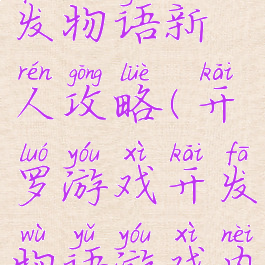 发物语新
rén gōng lüè kāi
人攻略(开
luó yóu xì kāi fā
罗游戏开发
wù yǔ yóu xì nèi
物语游戏内